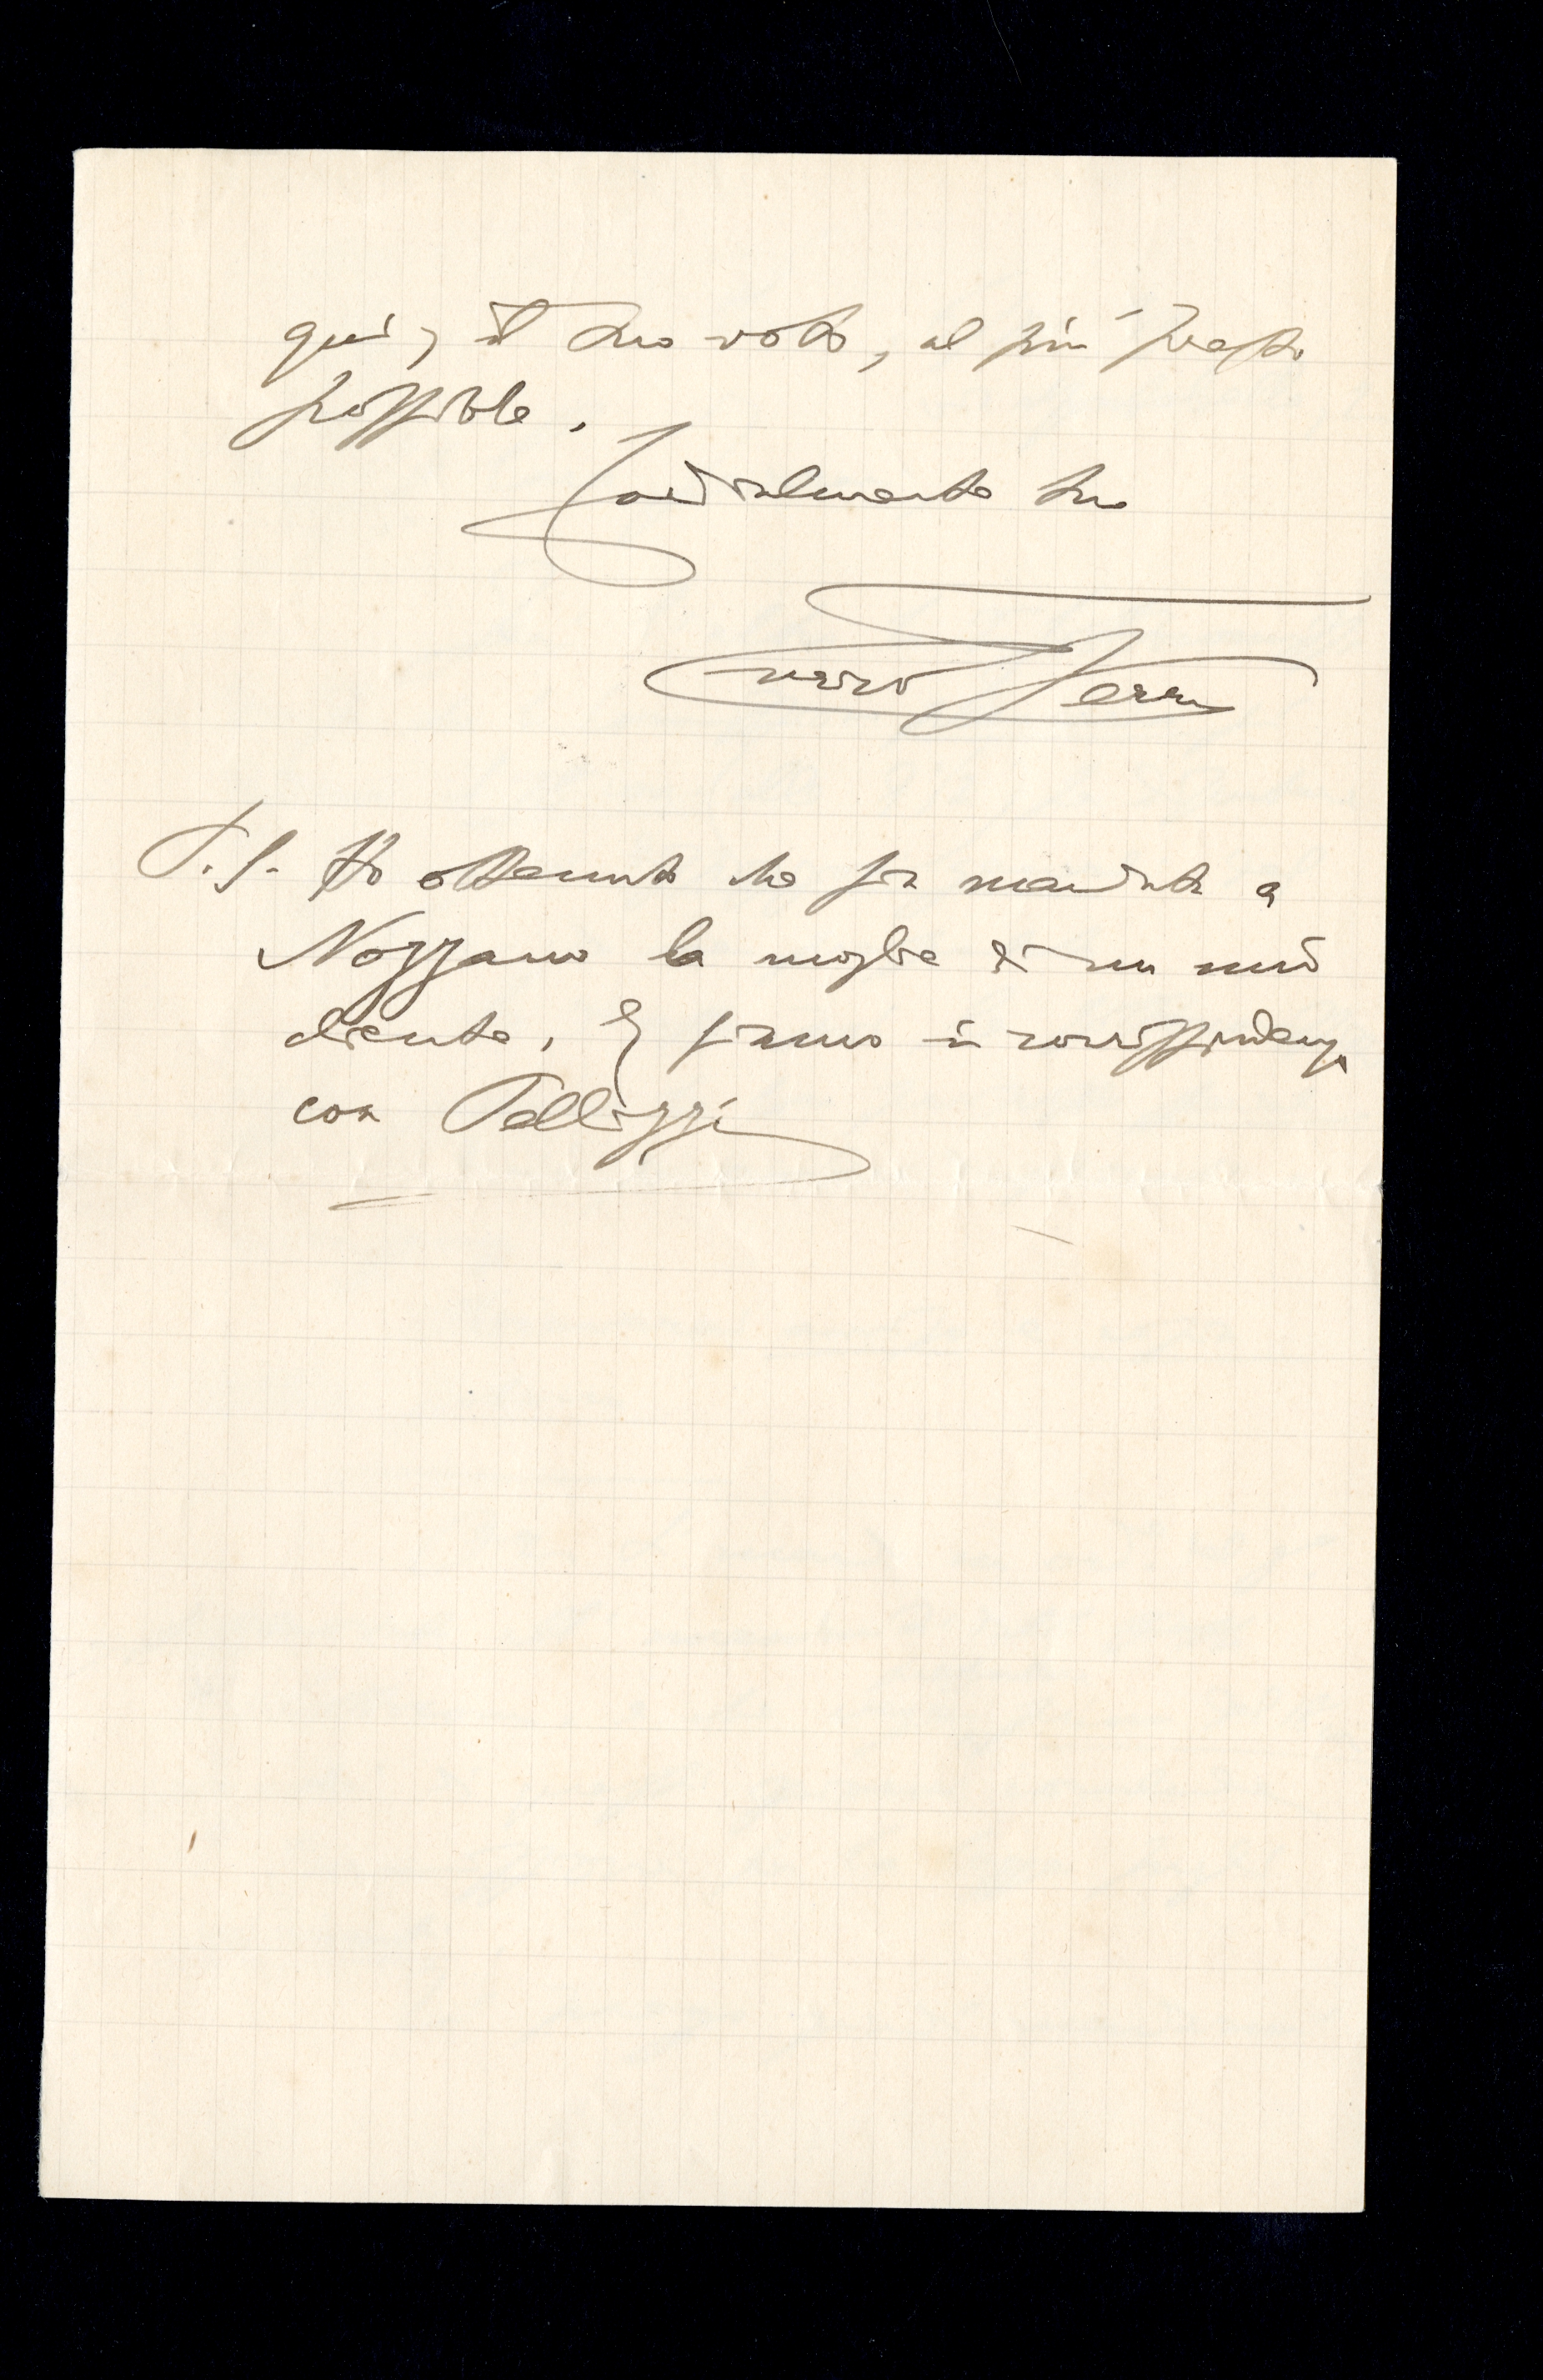 qui, il tuo voto, al più presto
possibile.
Cordialmente tuo
Enrico Ferri
P.S. Ho ottenuto che sia mandata a
Nozzano la moglie di un mio
cliente. E siamo in corrispondenza
con Pellizzi